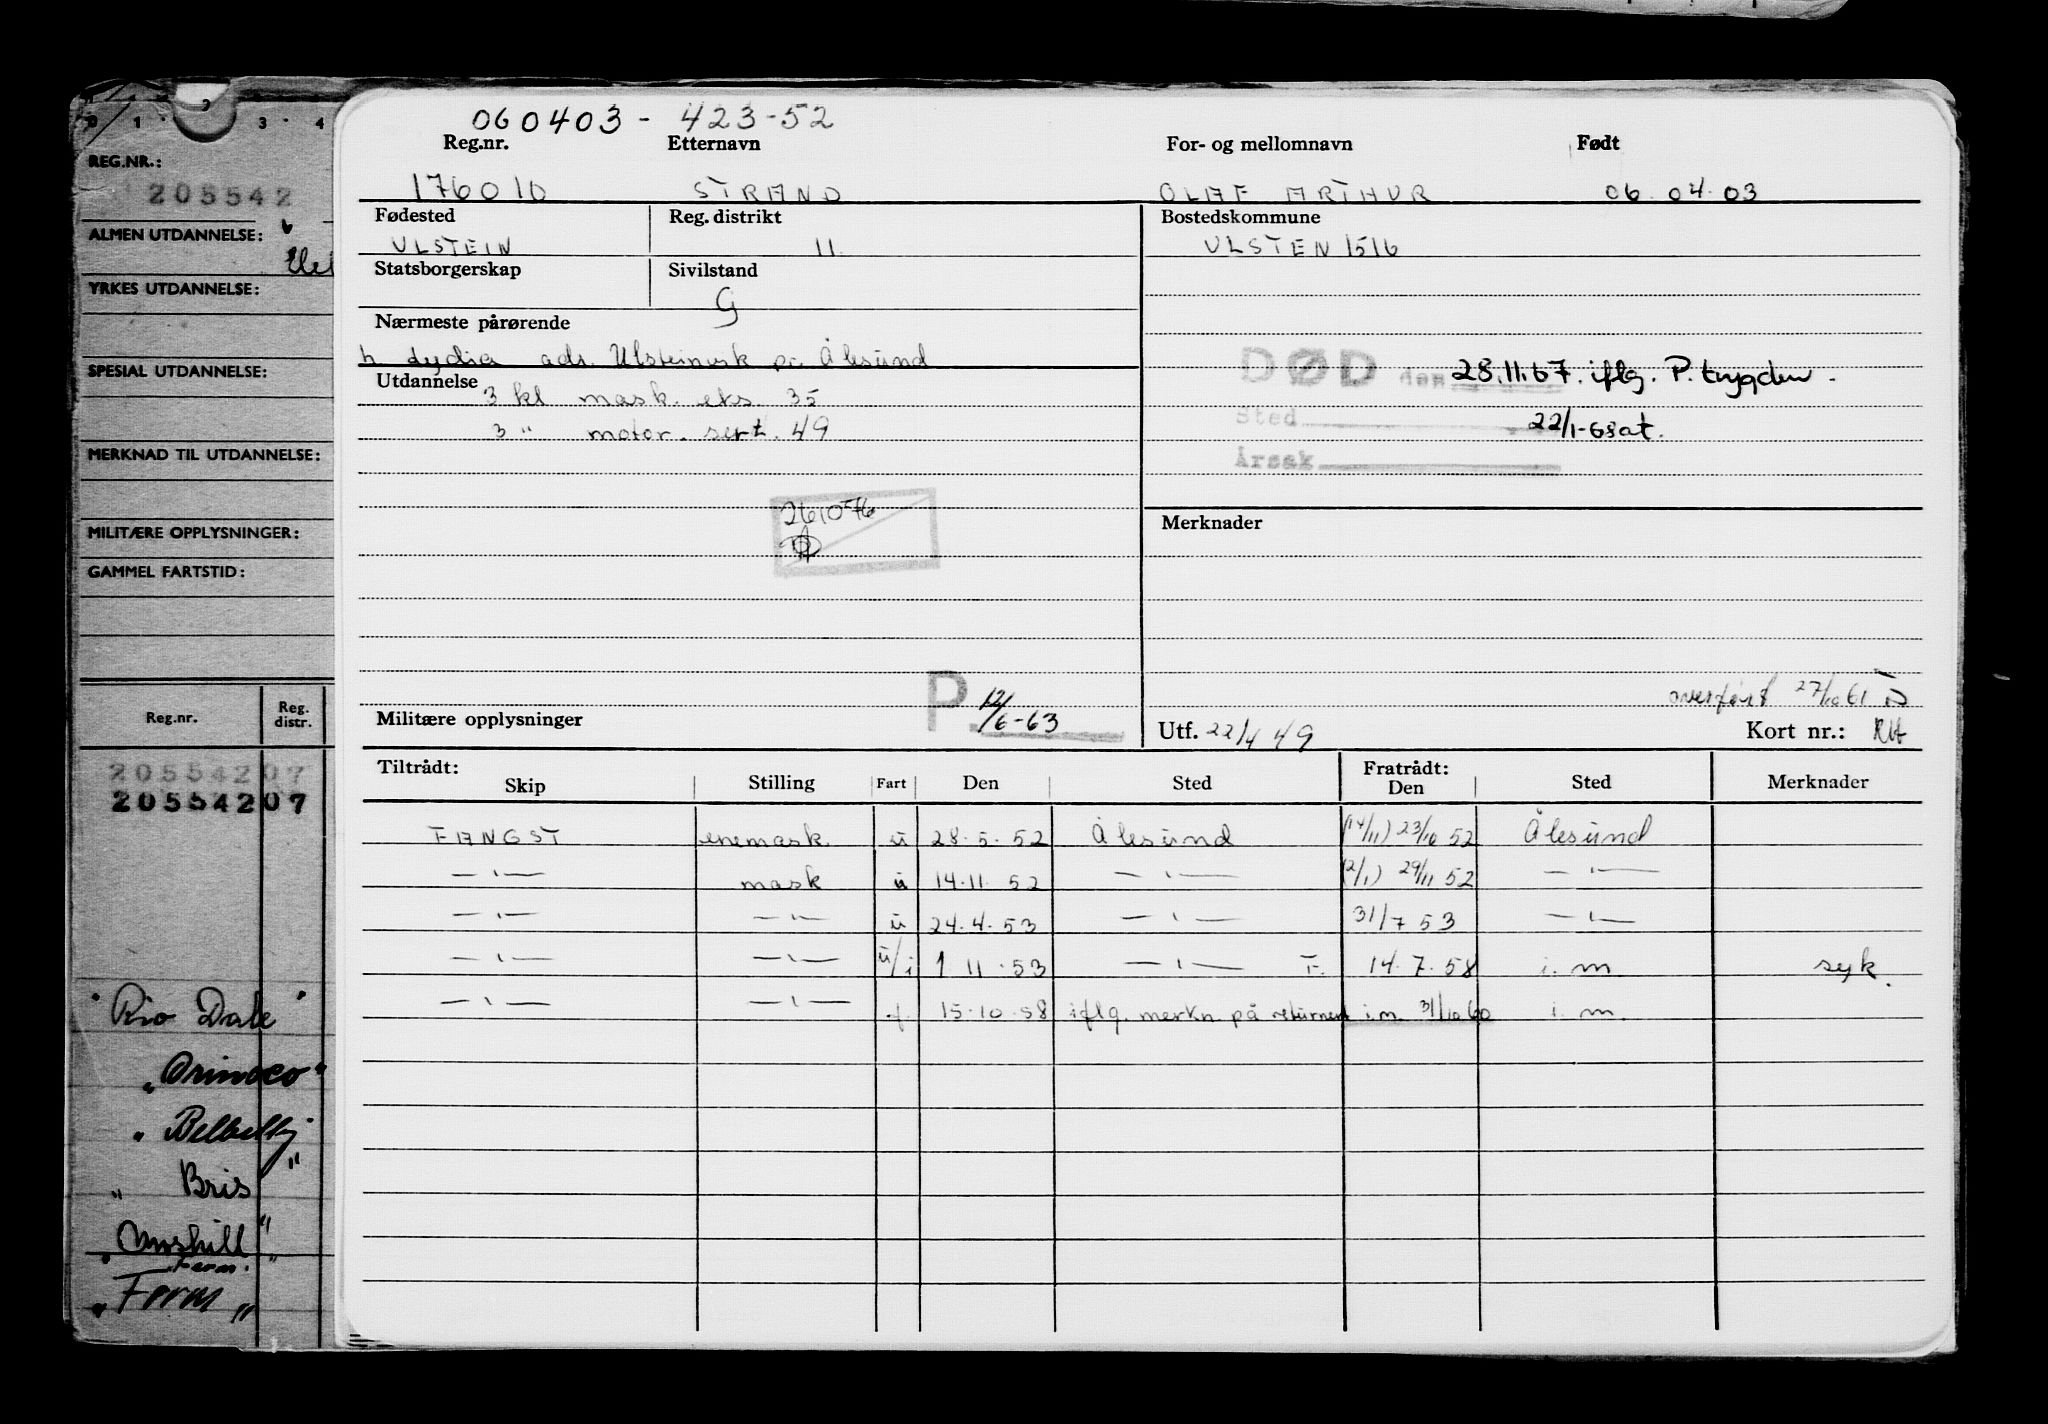 0 1 2 3 · 4
REG.NR.:
205542
ALMEN UTDANNELSE:
YRKES UTDANNELSE:
SPESIAL UTDANNELSE:
MERKNAD TIL UTDANNELSE:
MILITÆRE OPPLYSNINGER:
GAMMEL FARTSTID:
Reg.nr. Reg. distr.
205542 07
205542 07
"Rio Dale"
"Orinoco"
"Bris"
"Form"
060403 - 423-52
Reg.nr. Etternavn For- og mellomnavn Født
176010 STRAND OLAF ARTHUR 06.04.03
Fødested Reg. distrikt Bostedskommune
ULSTEIN 11. ULSTEN 1516
Statsborgerskap Sivilstand
G
Nærmeste pårørende
h Lydia adr. Ulsteinvik pr Ålesund
DØD den 28.11.67. iflg. P. trygden.
Utdannelse 3 kl mask. eks. 35
Sted 22/1-68 at.
3 " motor. sert. 49
Årsak
261076
Merknader
overført 27/10 61
P. 12/6-63
Militære opplysninger Utf. 22/4 49 Kort nr.: RH
Tiltrådt: Fratrådt:
Skip Stilling Fart Den Sted Den Sted Merknader
FANGST enemask. u 28.5.52 Ålesund (14/11) 23/10 52 Ålesund
— " — mask u 14.11.52 — " — (2/1) 29/11 52 — " —
— " — — " — u 24.4.53 — " — 31/7 53 — " —
— " — — " — u/i 1 11.53 — " — F. 14.7.58 i.m syk.
— " — — " — f. 15.10.58 iflg. merkn. på returnert i.m. 31/10 60 i.m.